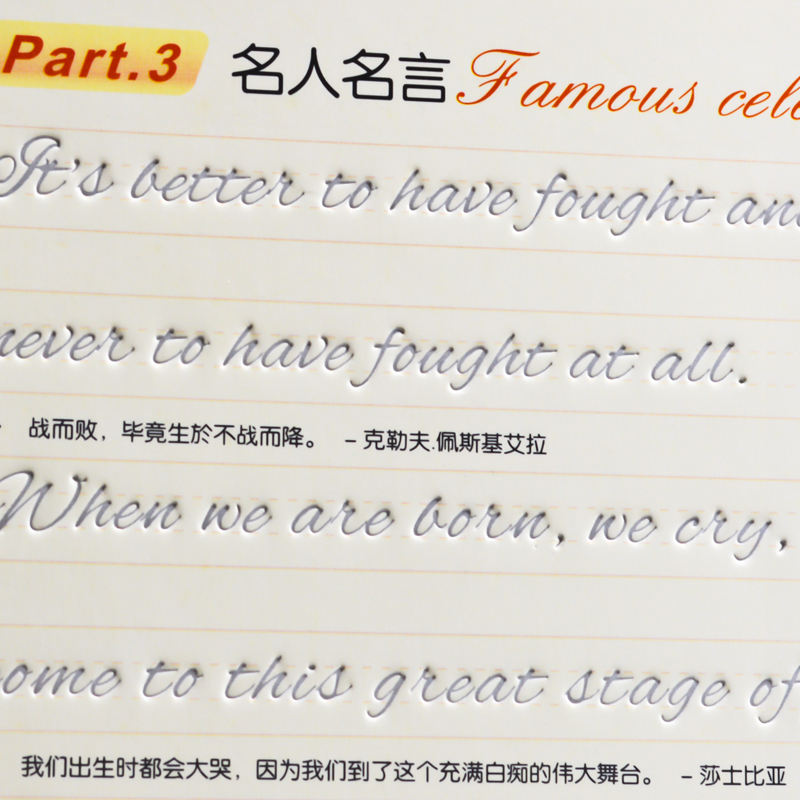 Part.3 名人名言 Famous
It's better to have fought
never to have fought at all.
战而败，毕竟生於不战而降。 -克勒夫.佩斯基艾拉
When we are born, we cry,
to this great stage of
我们出生时都会大哭，因为我们到了这个充满白痴的伟大舞台。 -莎士比亚